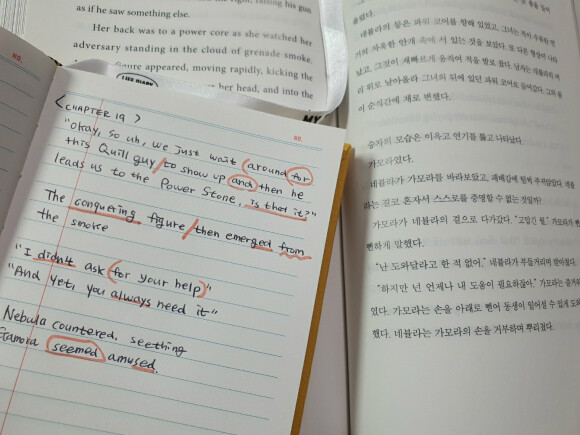 right, raising his gun
as if he saw something else.
Her back was to a power core as she watched her
adversary standing in the cloud of grenade smoke.
figure appeared, moving rapidly, kicking the
her head, and into the
LIKE DIARY
MY
NO.
NO.
<CHAPTER 19>
"Okay, so uh, we just wait around for
this Quill guy / to show up and then he
leads us to the Power Stone, is that it?"
The conquering figure / then emerged from
the smoke
"I didn't ask (for your help)"
"And yet, you always need it"
Nebula countered, seething
Gamora seemed amused.
네뷸라의 등은 파워 코어를 향해 있었고, 그녀는
속에 서 있는 것을 보았다. 또 다른 형상이 나타
났고, 그것이 재빠르게 움직여 적을 발로 찼다.
리 위로 날아올라 그녀의 뒤에 있던 파워 코어로
이 순식간에 재로 변했다.
승자의 모습은 이윽고 연기를 뚫고 나타났다.
가모라였다.
네뷸라가 가모라를 바라보았고,
는 결코 혼자서 스스로를 증명할 수 없는 것일까?
가모라가 네뷸라의 곁으로 다가갔다. "고맙긴 뭘." 가모라가
뻔하게 말했다.
"난 도와달라고 한 적 없어." 네뷸라가 부들거리며 받아쳤다.
"하지만 넌 언제나 내 도움이 필요하잖아." 가모라는
였다. 가모라는 손을 아래로 뻗어 동생이 일어설 수 있게
했다. 네뷸라는 가모라의 손을 거부하며 뿌리쳤다.